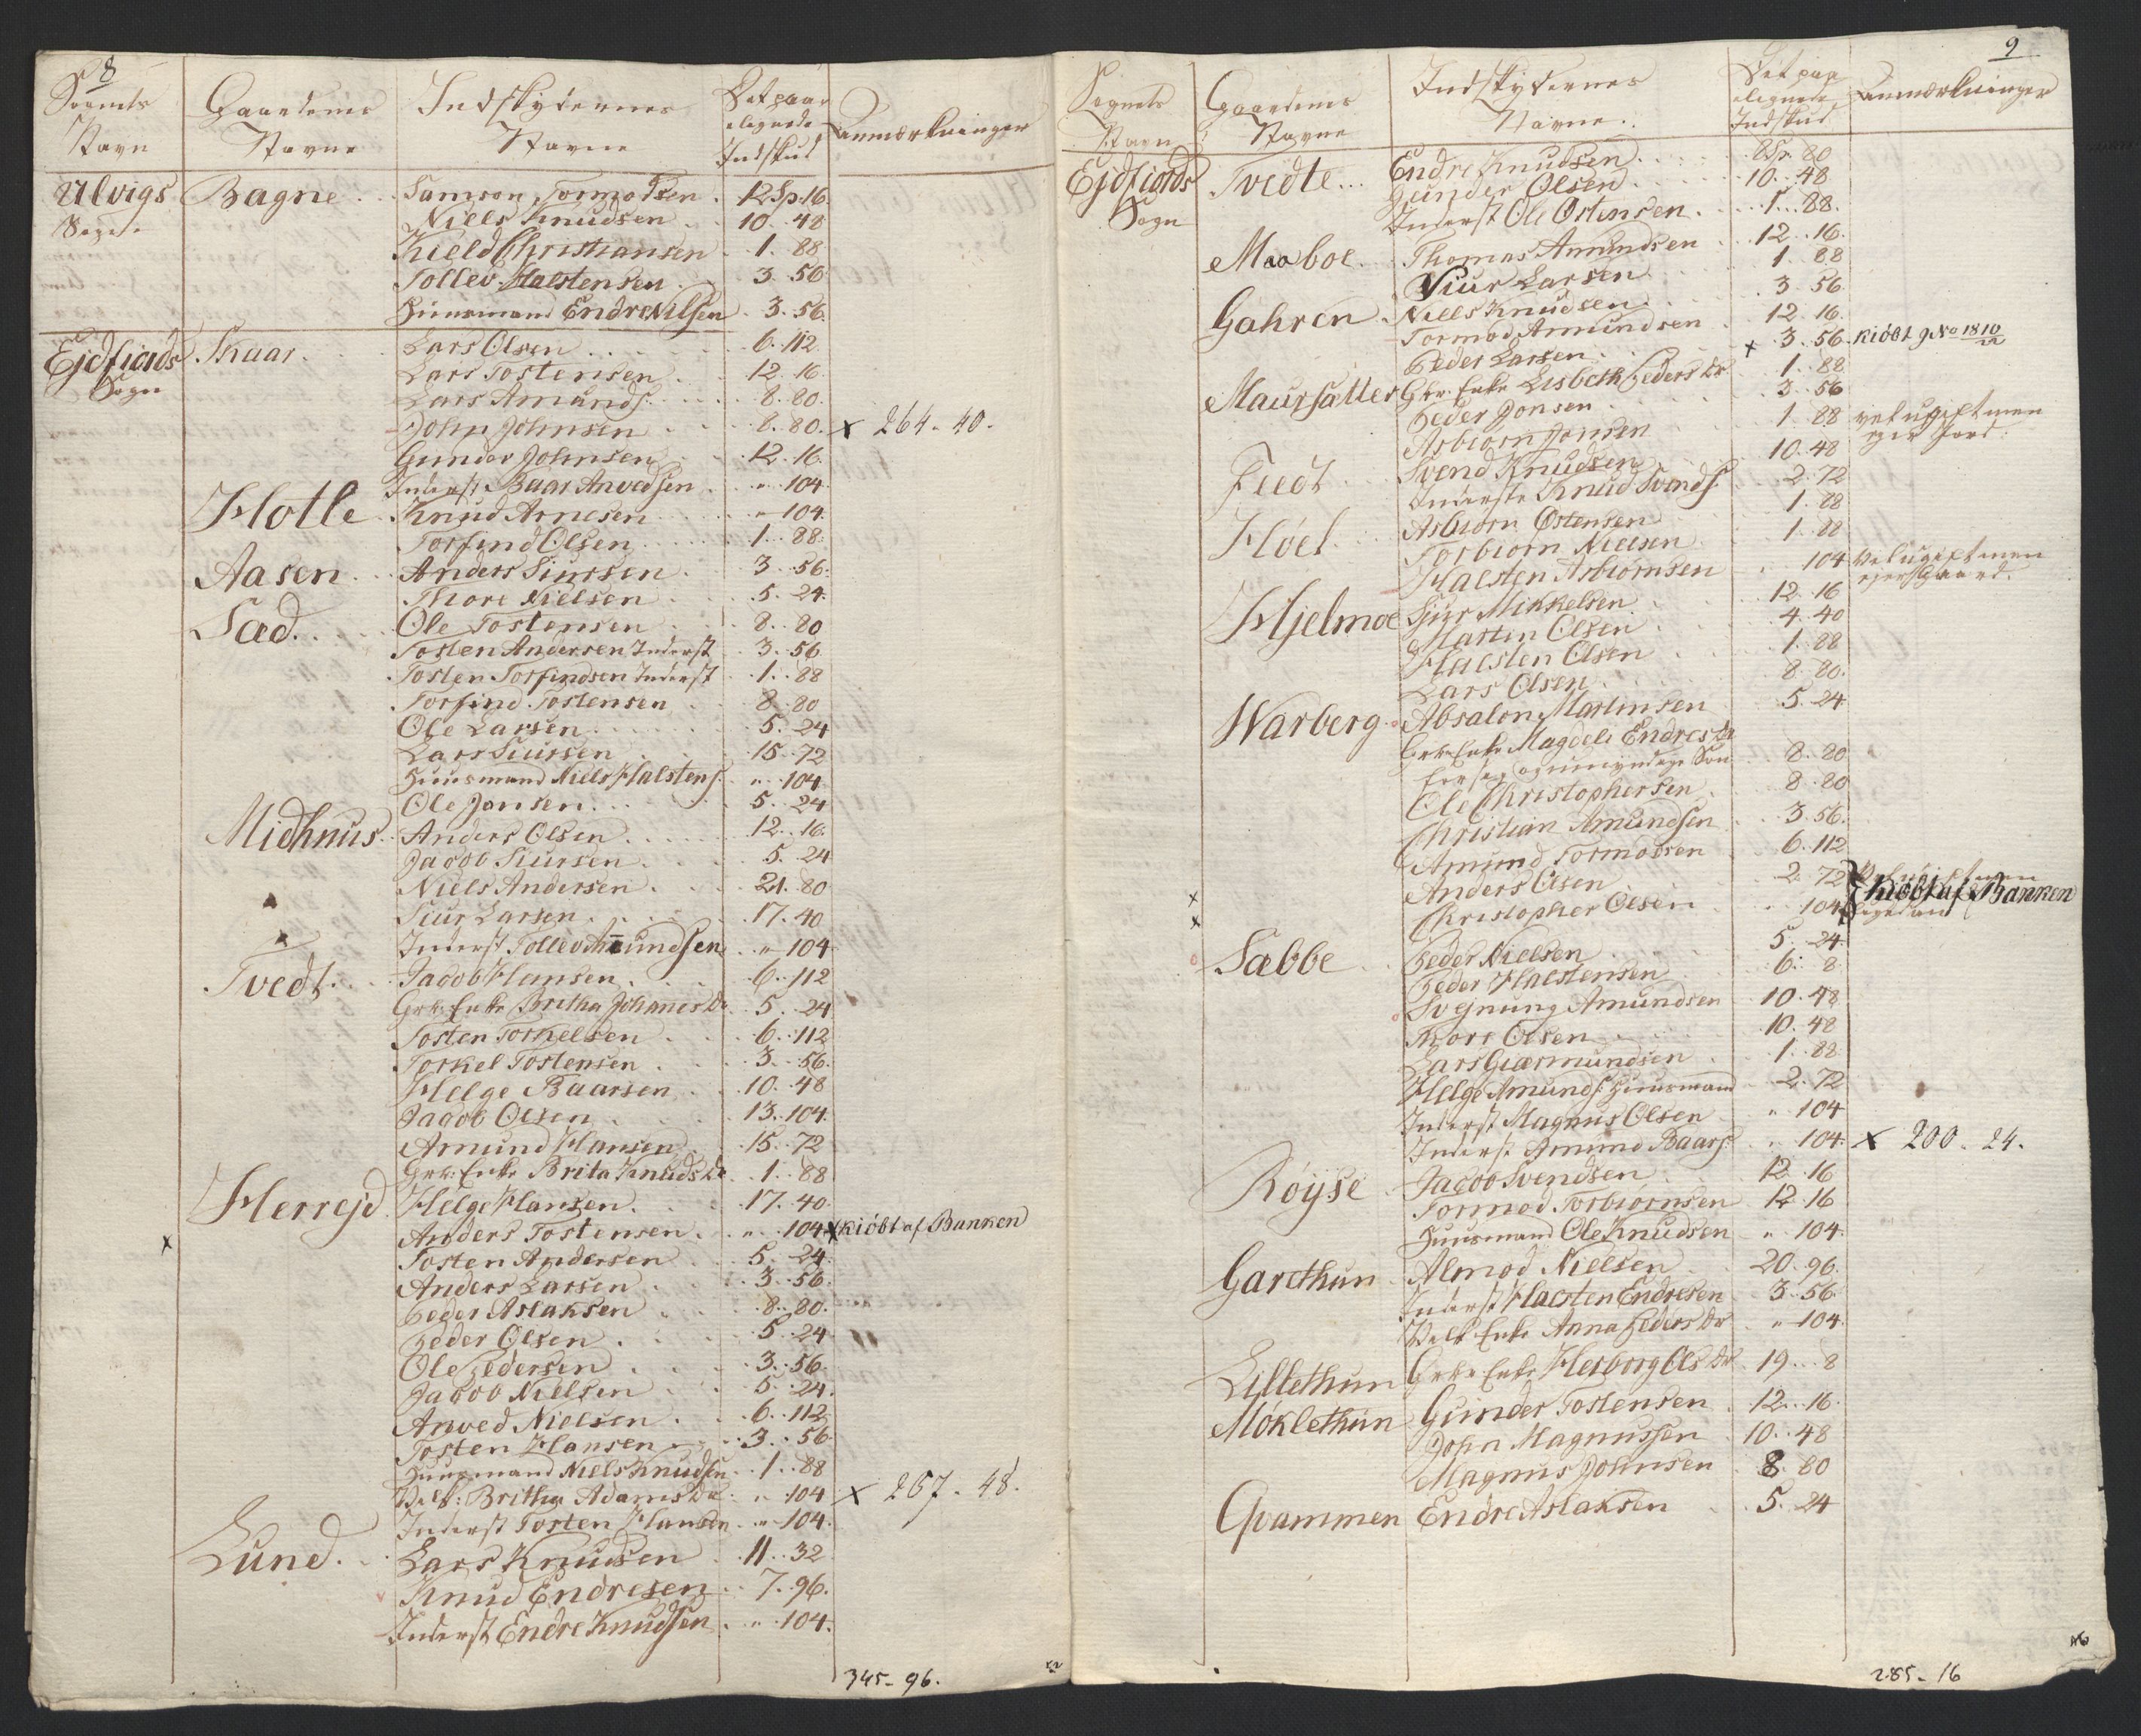 8
Sognets Navn
Gaardenes Navne
Indskydernes Navne
Det paalignede Indskud
Anmærkninger
Ulvigs Sogn
Bagne Samson Tormodsen 12 Sp. 16
Niels Knudsen 10. 48
Kield Christiansen 1. 88
Tollev Halstensen 3. 56
Huusmand Endre Nilsen 3. 56
Ejdfiords Sogn
Skaar Lars Olsen 6. 112
Lars Tostensen 12. 16
Lars Amunds. 8. 80
John Johnsen 8. 80. x 264 - 40.
Gunder Johnsen 12. 16.
Inderst Baar Anvedsen " 104
Hotle Knud Arnesen " 104
Torfind Olsen 1. 88
Aasen Anders Siursen 3. 56
Thore Nielsen 5. 24
Sæd Ole Tostensen 8. 80
Tosten Andersen Inderst 3. 56
Tosten Torfindsen Inderst 1. 88
Torfind Tostensen 8. 80
Ole Larsen 5. 24
Lars Siursen 15. 72
Huusmand Niels Halstens. " 104
Ole Jonsen 5. 24
Midhuus Anders Olsen 12. 16
Jacob Siursen 5. 24
Niels Andersen 21. 80
Siur Larsen 17. 40
Inderst Tollev Amundsen " 104
Tvedt Jacob Hansen 6. 112
Grbr: Enke Britha Johanes Dr 5. 24
Tosten Torkelsen 6. 112
Torkel Tostensen 3. 56
Helge Baarsen 10. 48
Jacob Olsen 13. 104
Amund Hansen 15. 72
Grbr: Enke Brita Knuds Dr 1. 88
Herrejd Helge Hansen 17. 40
x Anders Tostensen " 104 x kiöbt af Banken
Tosten Andersen 5. 24
Anders Larsen 3. 56
Peder Aslaksen 8. 80
Peder Olsen 5. 24
Ole Pedersen 3. 56
Jacob Nielsen 5. 24
Anved Nielsen 6. 112
Tosten Hansen 3. 56
Huusmand Niels Knudsen 1. 88
Pelb: Britha Adams Dr " 104 x 267 - 48.
Inderst Tosten Hansen " 104
Lund Lars Knudsen 11. 32
Knud Endresen 7. 96
Inderst Endre Knudsen " 104
345 - 96.
9
Sognets Navn
Gaardenes Navne
Indskydernes Navne
Det paalignede Indskud
Anmærkninger
Ejdfiords Sogn
Tvedte Endre Knudsen 8 Sp. 80
Gunder Olsen 10. 48
Inderst Ole Ostensen 1. 88
Maaboe Thomas Amundsen 12. 16
Siur Larsen 1. 88
Gahren Niels Knudsen 3. 56
Tormod Amundsen 12. 16
Peder Larsen x 3. 56 kiöbt 9 No 1810
Maursætter Gbr: Enke Lisbeth Peders Dr 1. 88
Peder Jonsen 3. 56
Asbiorn Jonsen 1. 88 vel ugift men ejer Jord.
Fiedt Svend Knudsen 10. 48
Inderste Knud Svends. 2. 72
Höel Asbiorn Ostensen 1. 88
Torbiorn Nielsen 1. 88
Halsten Asbiornsen " 104 Vel ugift men ejer Gaard.
Hjelmoe Sjur Mikkelsen 12. 16
Marten Olsen 4. 40
Halsten Olsen 1. 88
Lars Olsen 8. 80
Warberg Absalon Martinsen 5. 24
Grbr: Enke Magdele Endres Dr
for sig og umyndige Søn 8. 80
Ole Christophersen 8. 80
Christian Amundsen 3. 56
Amund Tormodsen 6. 112
x Anders Olsen 2. 72
x Christopher Olsen " 104 kiöbt af Banken
Sæbbe Peder Nielsen 5. 24
Peder Halstensen 6. 8
Svejnung Amundsen 10. 48
Thore Olsen 10. 48
Lars Giærmundsen 1. 88
Helge Amunds. Huusmand 2. 72
Inderst Magnus Olsen " 104
Inderst Amund Baars. " 104 x 200 - 24.
Röyse Jacob Svendsen 12. 16
Tormod Torbiornsen 12. 16
Huusmand Ole Knudsen " 104
Garethun Almod Nielsen 20. 96
Inderst Halsten Endresen 3. 56
Pelb: Enke Anna Peders Dr " 104
Lillethun Grbr: Enke Herborg Ols Dr 19. 8
Möklethun Gunder Tostensen 12. 16
John Magnussen 10. 48
Magnus Johnsen 8. 80
Qvammen Endre Aslaksen 5. 24
285 - 16